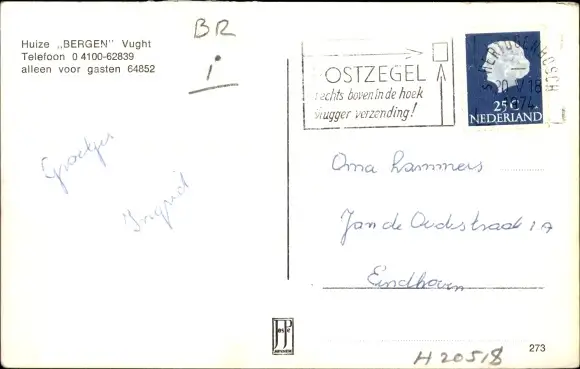 Huize „BERGEN" Vught
Telefoon 0 4100-62839
alleen voor gasten 64852
BR
i
OSTZEGEL
rechts boven in de hoek
vlugger verzending!
S-HERTOGENBOSCH
1974
25 C
NEDERLAND
Groetjes
Ingrid
Oma Lammers
Jan de Oudestraat 1A
Eindhoven
273
H 20518